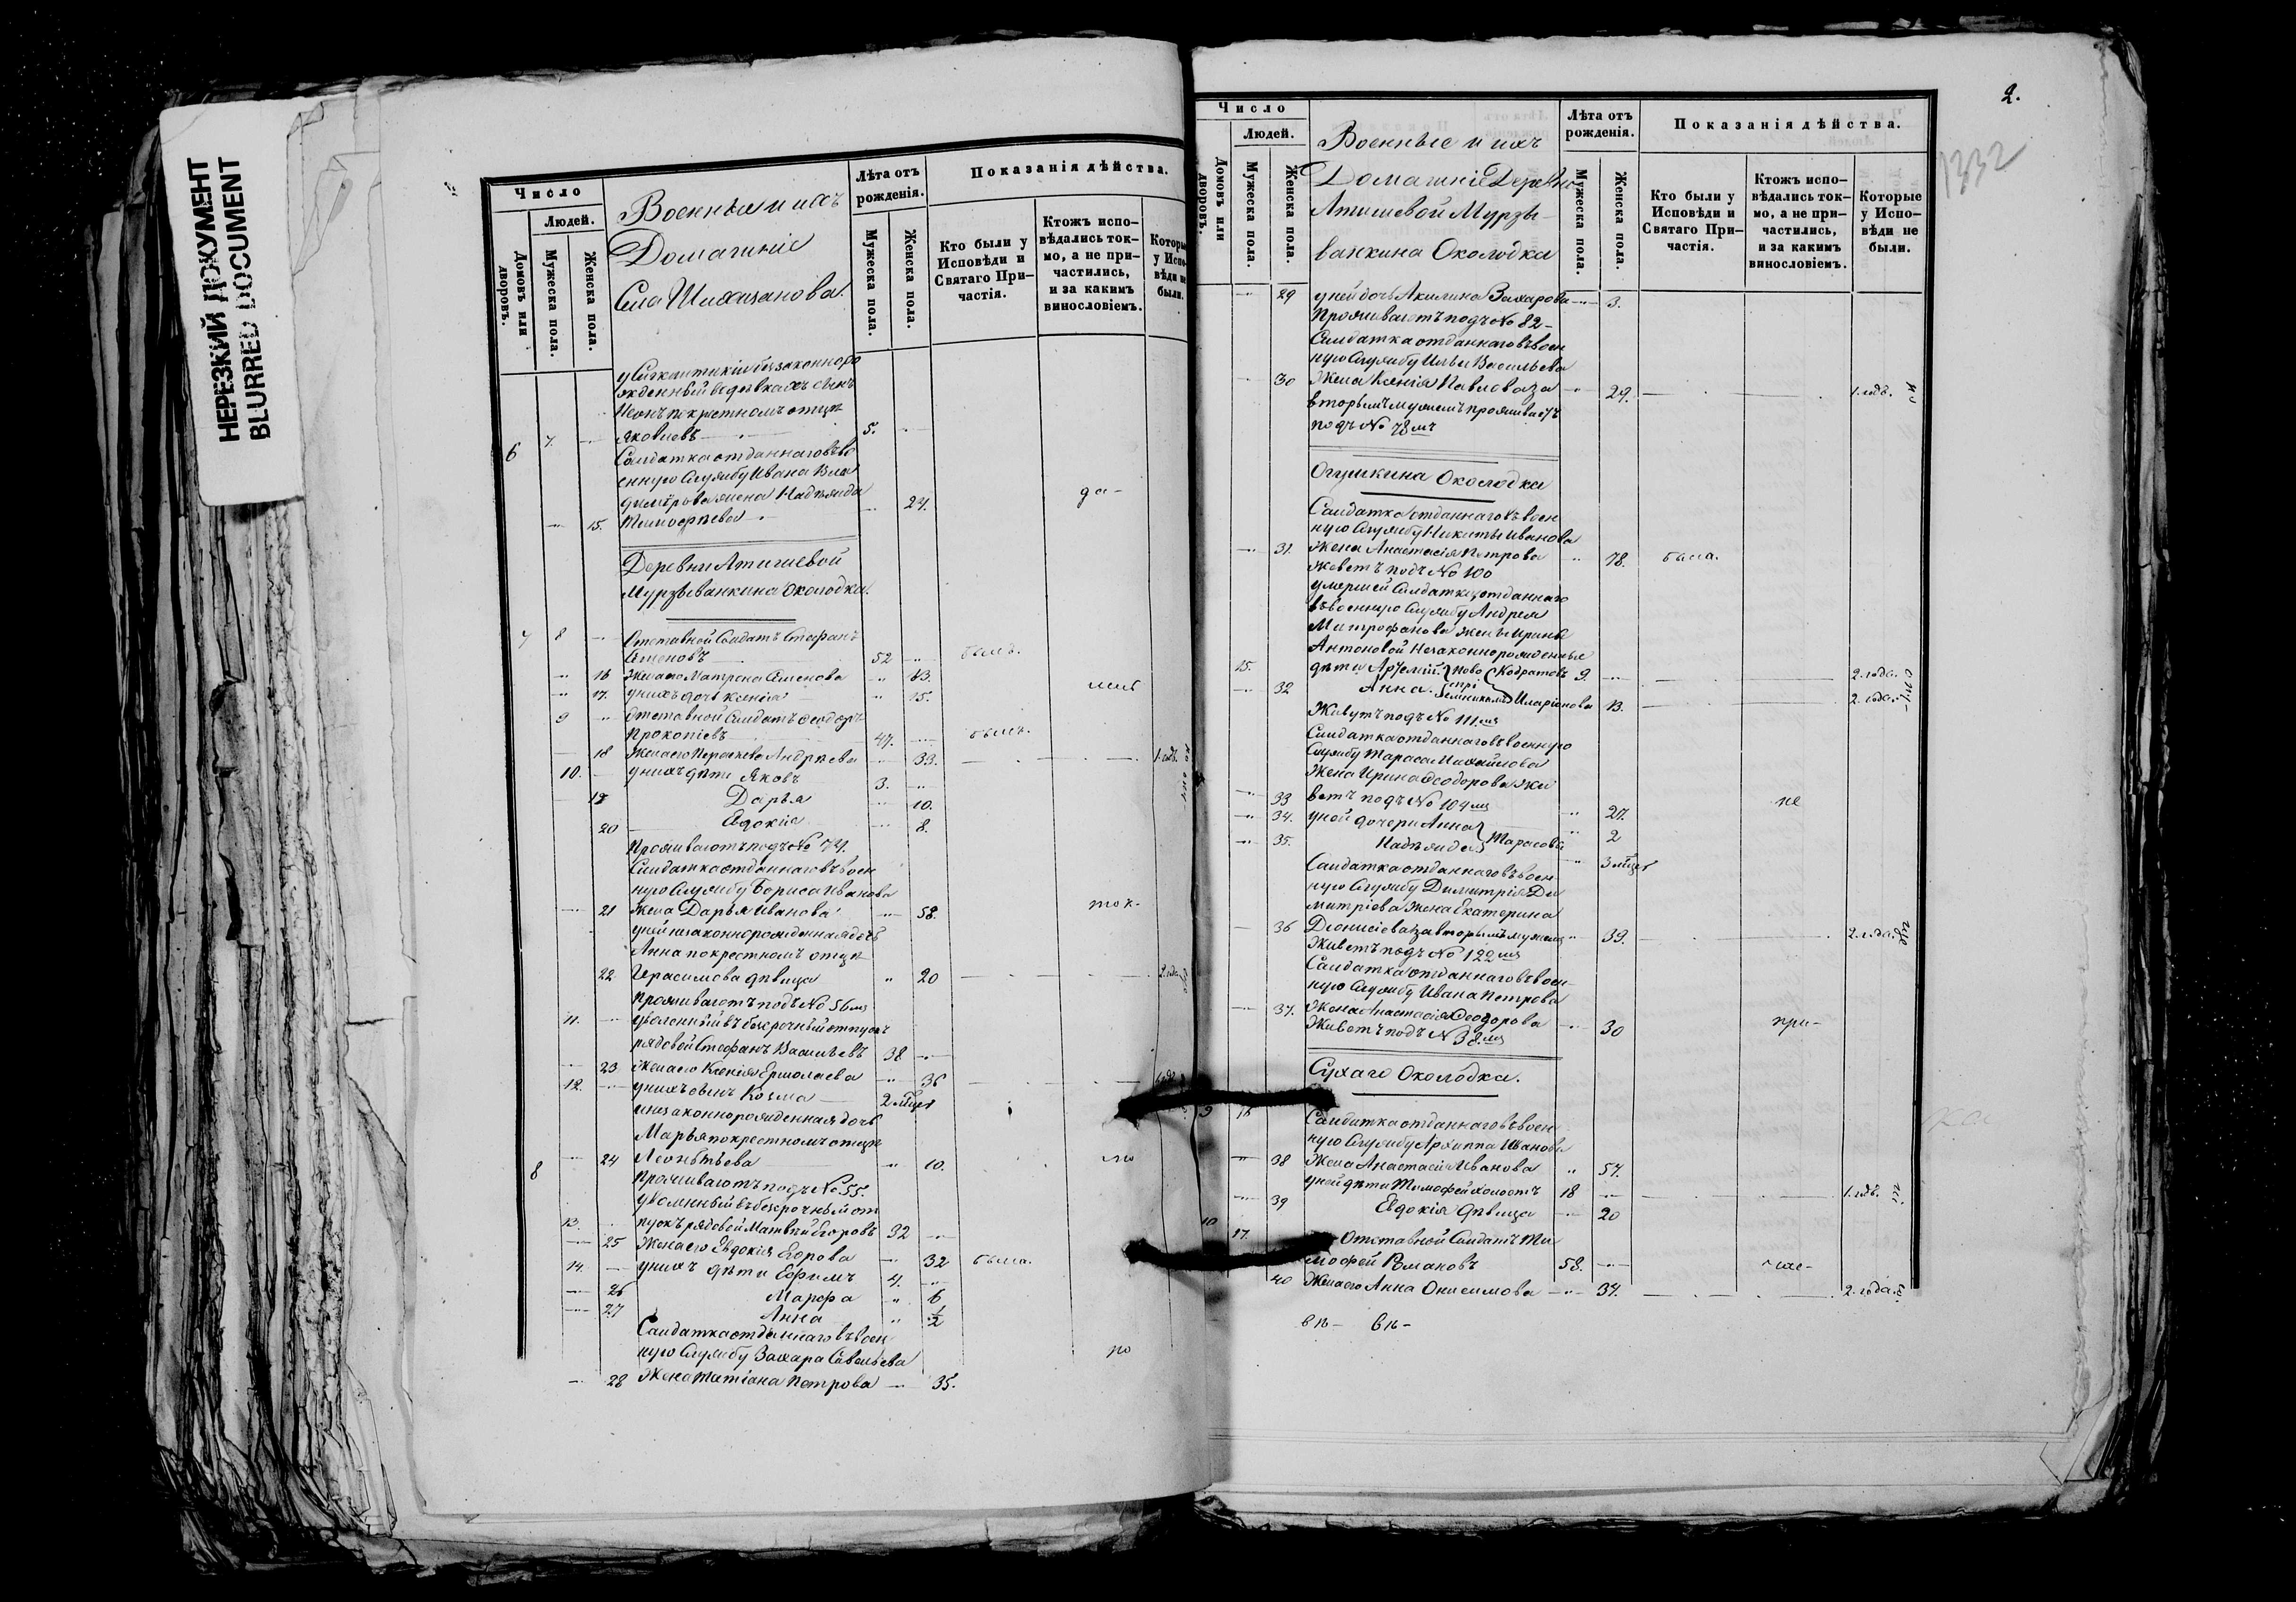 НЕРЕЗКИЙ ДОКУМЕНТ
BLURRED DOCUMENT
Число
Людей.
Домовъ или дворовъ.
Мужеска пола.
Женска пола.
Военныя и ихъ
Домашніе
Села Шихазанова.
Лѣта отъ рожденія.
Мужеска пола.
Женска пола.
Показанія дѣйства.
Кто были у Исповѣди и Святаго Причастія.
Ктожъ исповѣдались токмо, а не причастились, и за какимъ винословіемъ.
Которые у Исповѣди не были.
незаконноро
жденный сынъ
по крестномъ отцѣ
7. Яковлевъ 5.
6 Солдатка отданнаго въ во
енную Службу Ивана Вла
димірова жена Надежда 24. да-
15. Тимофѣева
Деревни Атышевой
Мурзыванкина Околодка.
7 8 Отставной Солдатъ Стефанъ
Семеновъ 52 былъ.
16 Жена его Матрона Семенова 43.
17. у нихъ дочь Ксенія 15.
9 Отставной Солдатъ Ѳеодоръ
Прокопіевъ 47. былъ.
18 Жена его Параскева Андрѣева 33. 1. годъ.
10. у нихъ дѣти Яковъ 3.
19 Дарья 10.
20 Евдокія 8.
Проживаютъ подъ № 74.
Солдатка отданнаго въ воен
ную Службу Бориса Иванова
21 Жена Дарья Иванова 58. ток-
у ней незаконнорожденная дочь
Анна по крестномъ отцѣ
22 Герасимова дѣвица 20 2. года
Проживаютъ подъ № 56мъ
11. уволенный въ безсрочный отпускъ
рядовой Стефанъ Васильевъ 38
23 Жена его Ксенія Ермолаева 36
12. у нихъ сынъ Козма 2 мѣсц
и незаконнорожденная дочь
Марья по крестномъ отцѣ
24 Леонтьева 10. мо
8 Проживаютъ подъ № 55.
уволенный въ безсрочный от
13. пускъ рядовой Матвѣй Егоровъ 32
25 Жена его Евдокія Егорова 32 была.
14. у нихъ дѣти Ефимъ 4.
26 Марѳа 6
27 Анна 1/2
Солдатка отданнаго въ воен
ную Службу Захара Савельева по
28 Жена Татіана Петрова 35.
2.
1332
Число
Людей.
Домовъ или дворовъ.
Мужеска пола.
Женска пола.
Военные и ихъ
Домашніе Деревни
Атышевой Мурзы-
ванкина Околодка
Лѣта отъ рожденія.
Мужеска пола.
Женска пола.
Показанія дѣйства.
Кто были у Исповѣди и Святаго Причастія.
Ктожъ исповѣдались токмо, а не причастились, и за какимъ винословіемъ.
Которые у Исповѣди не были.
29 у ней дочь Акилина Захарова 3.
Проживаютъ подъ № 82-
Солдатка отданнаго въ воен
ную Службу Ильи Васильева
30 Жена Ксенія Павлова за 29. 1. годъ.
вторымъ мужемъ проживаетъ
подъ № 78мъ
Околодка
Солдатка отданнаго въ воен
ную Службу Никиты Иванова
31. Жена Анастасія Петрова 78. была.
Живетъ подъ № 100
умершей Солдатки отданнаго
въ военную Службу Андрея
Митрофанова жены Ирины
Антоновой Незаконнорожденные
15. дѣти Артемій по во Кодратовъ 9. 2. года.
32 Анна Иларіонова 13. 2. года.
Живутъ подъ № 111мъ
Солдатка отданнаго въ военную
Службу Тараса Михайлова
Жена Ирина Ѳеодорова жи
33 ветъ подъ № 104мъ 27. не
34. у ней дочери Анна 2
35. Надежда Тарасовы 3 мѣсц
Солдатка отданнаго въ воен-
ную Службу Димитрія Ди
митріева Жена Екатерина
36 Діонисіева за вторымъ мужемъ 39. 2. года.
Живетъ подъ № 122мъ
Солдатка отданнаго въ воен-
ную Службу Ивана Петрова
37. Жена Анастасія Ѳеодорова 30 при-
Живетъ подъ № 38.мъ
Сухаго Околодка.
9 16 Солдатка отданнаго въ воен
ную Службу Архиппа Иванова
38 Жена Анастасія Иванова 57.
у ней дѣти Тимофей холостъ 18 1. годъ.
39 Евдокія дѣвица 20
10 17. Отставной Солдатъ Ти
мофей Романовъ 58. час-
40 Жена его Анна Онисимова 34. 2. года.